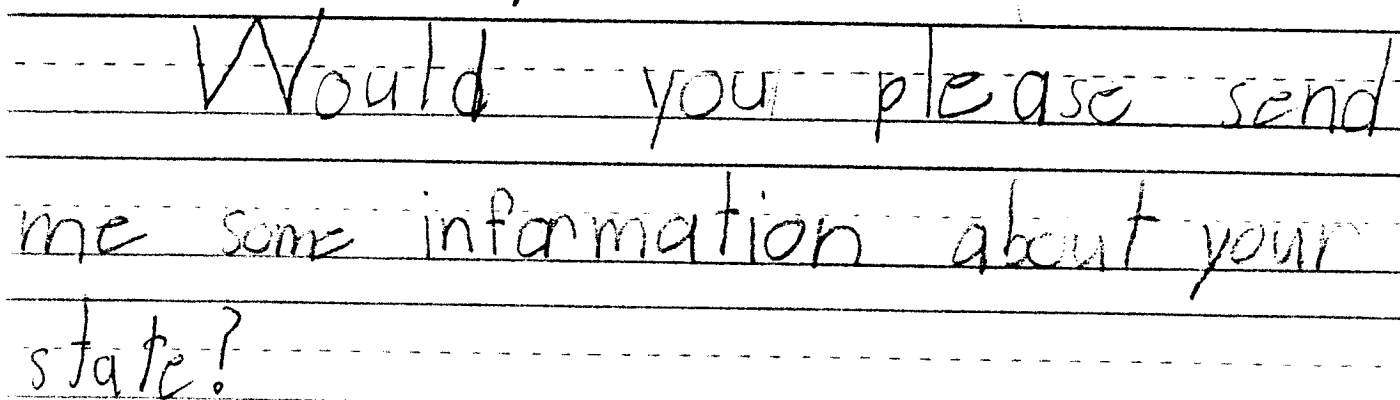 Would you please send
me some information about your
state?